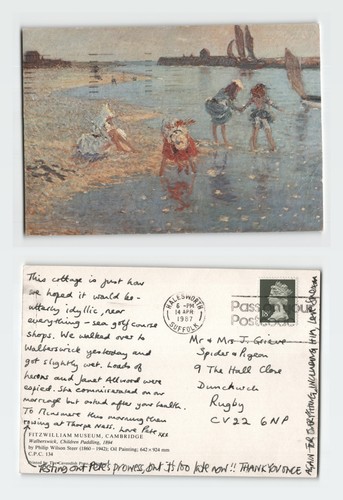 This cottage is just how
we hoped it would be -
utterly idyllic, near
everything - sea golf course
shops. We walked over to
Walberswick yesterday and
got slightly wet. Loads of
herons and Janet Allwood were
espied. She commiserated on our
marriage but asked after your health.
To Minsmere this morning then
at Thorpe Ness. Love Pete xxx
FITZWILLIAM MUSEUM, CAMBRIDGE
Walberswick, Children Paddling, 1894
by Philip Wilson Steer (1860 - 1942); Oil Painting; 642 × 924 mm
C.P.C. 134
Testing out Pete's prowess, but it's too late now!! THANK YOU ONCE
AGAIN FOR EVERYTHING, INCLUDING
HALESWORTH
6 - PM
14 APR
1987
SUFFOLK
Pass on your
Postcode
Mr & Mrs J. Grieve
Spider & Pigeon
9 The Hall Close
Dunchurch
Rugby
CV22 6NP